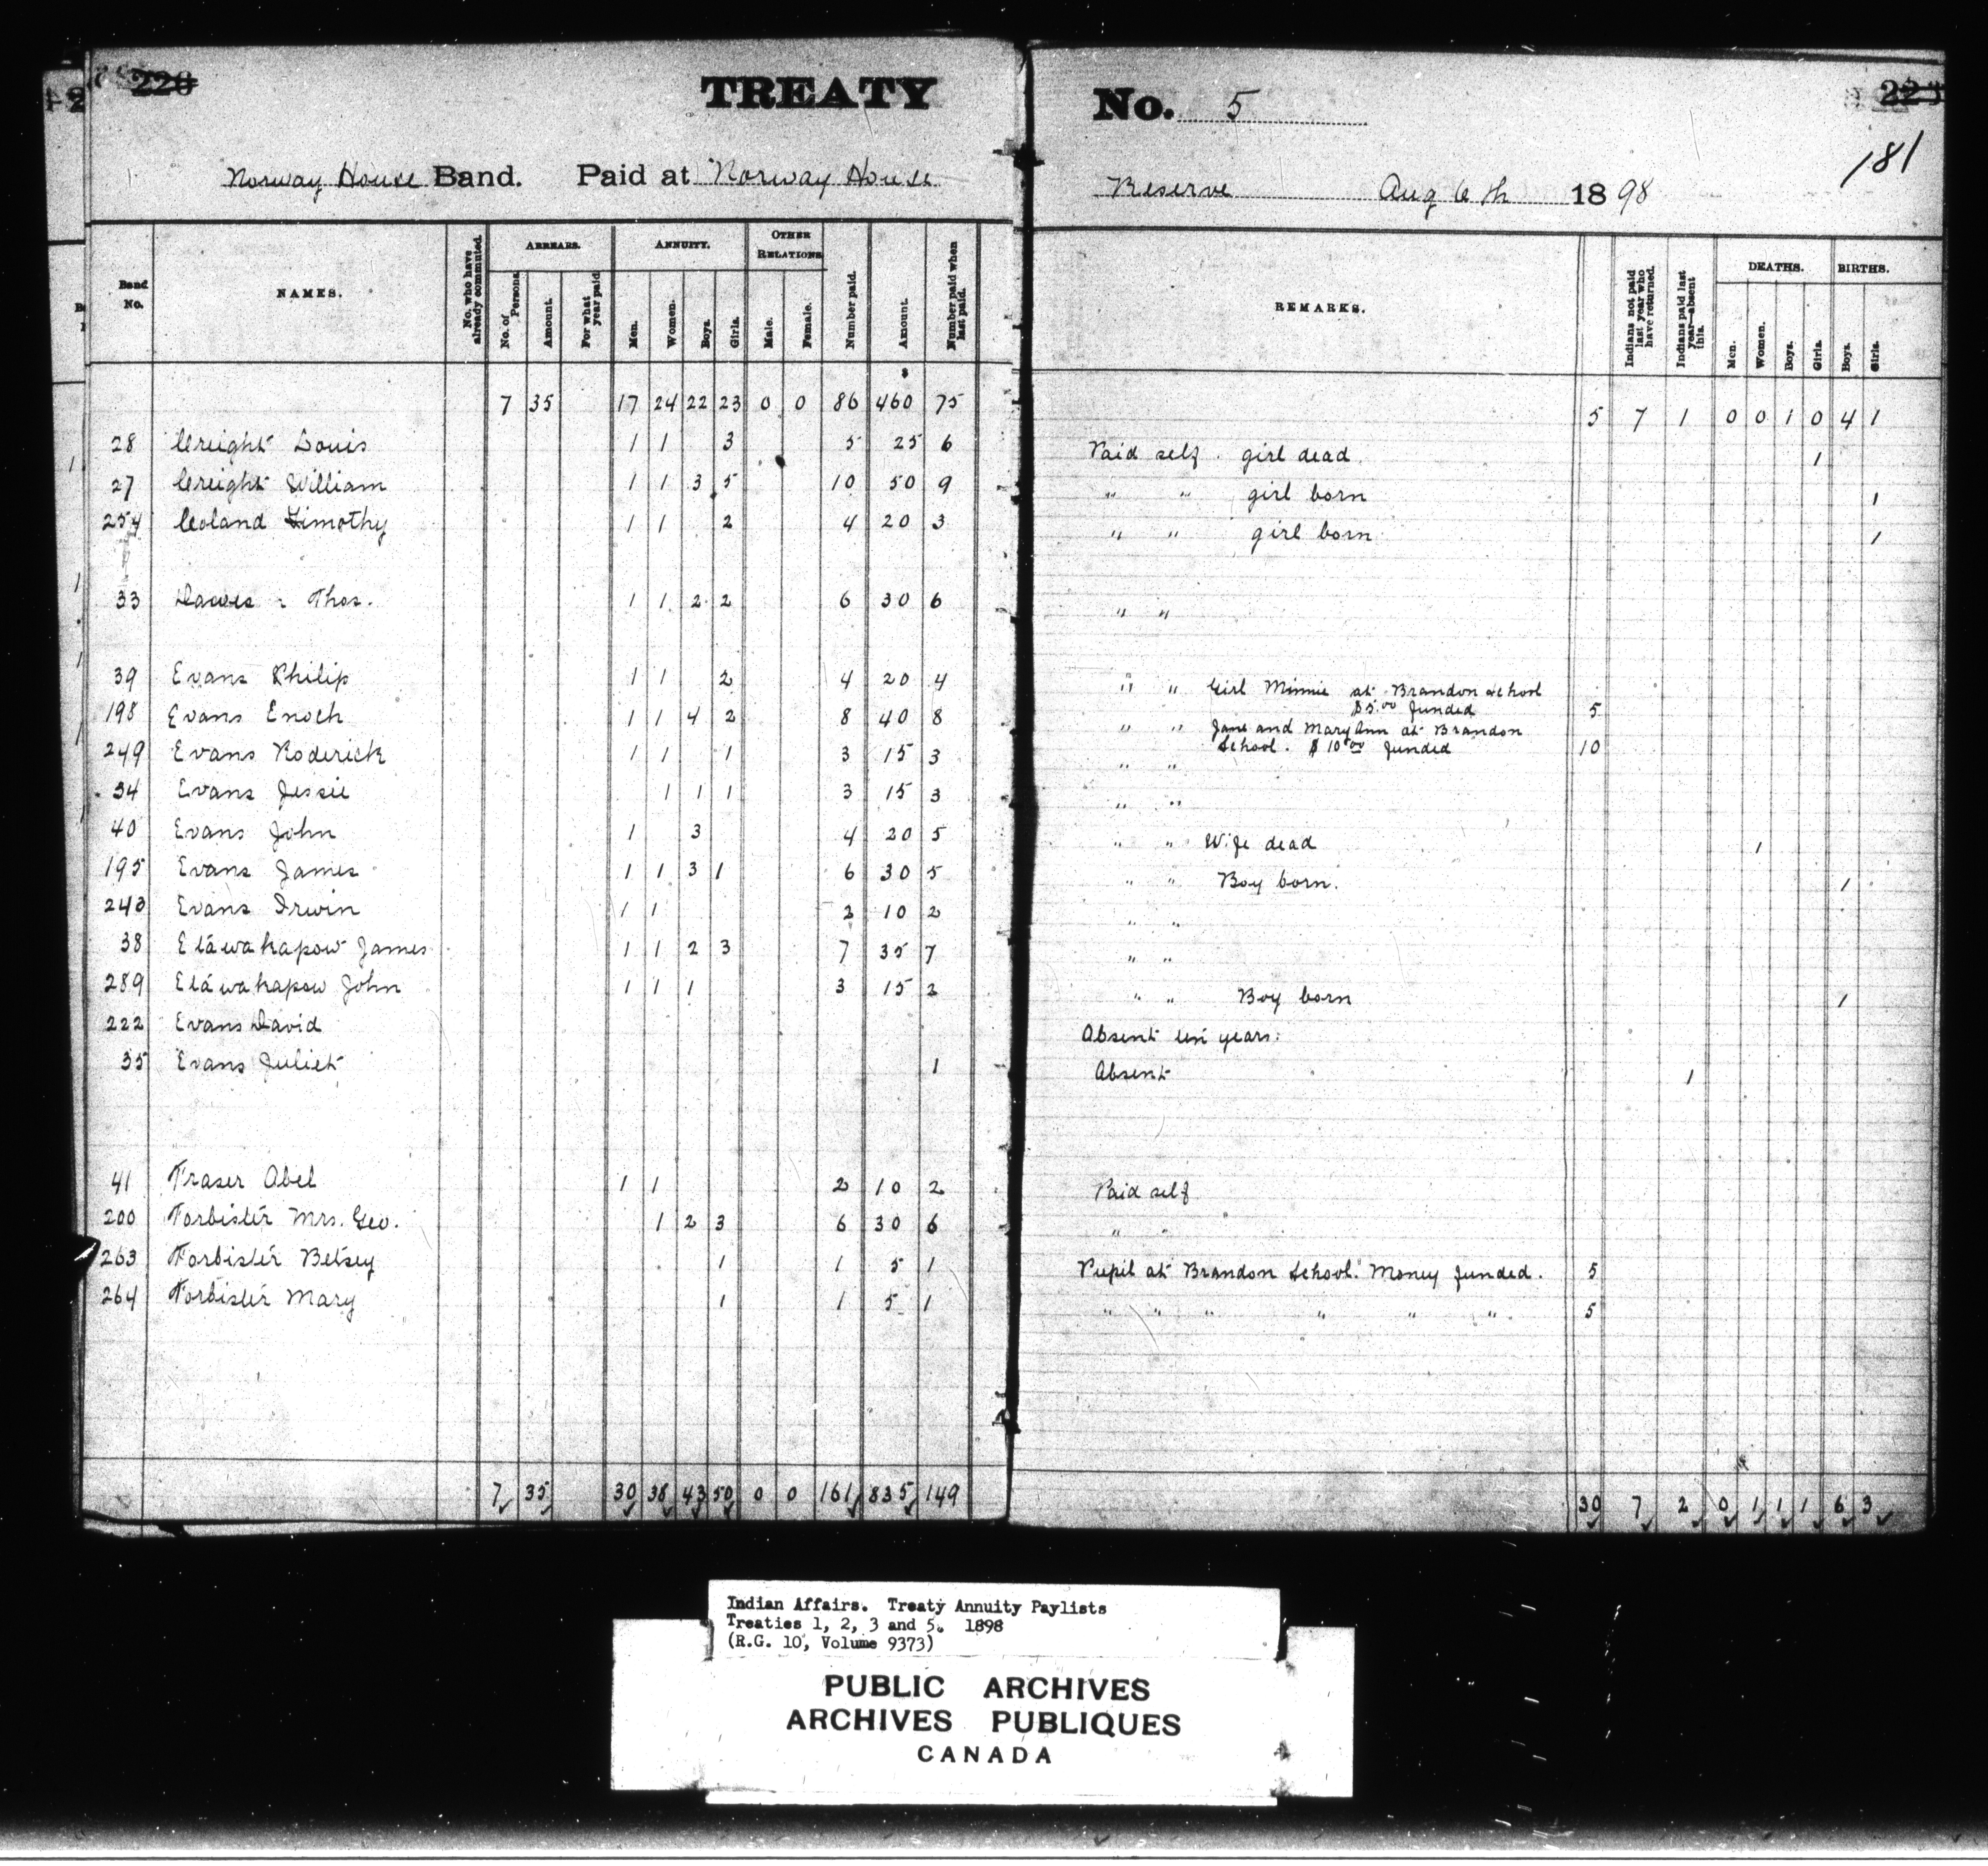 220 TREATY No. 5 221
181
Norway House Band. Paid at Norway House Reserve Aug 6th 1898
Band No. NAMES. No. who have already commuted. ARREARS. No. of Persons. Amount. For what year paid. ANNUITY. Men. Women. Boys. Girls. OTHER RELATIONS Male. Female. Number paid. Amount. Number paid when last paid. REMARKS. Indians not paid last year who have returned. Indians paid last year—absent this. DEATHS. Men. Women. Boys. Girls. BIRTHS. Boys. Girls.
7 35 17 24 22 23 0 0 86 460 75 5 7 1 0 0 1 0 4 1
28 Creight Louis 1 1 3 5 25 6 Paid self. girl dead 1
27 Creight William 1 1 3 5 10 50 9 " " girl born 1
254 Coland Timothy 1 1 2 4 20 3 " " girl born 1
33 Dawes Thos. 1 1 2 2 6 30 6 " "
39 Evans Philip 1 1 2 4 20 4 " " Girl Minnie at Brandon School
$5.00 funded 5
198 Evans Enoch 1 1 4 2 8 40 8 " " Jane and Mary Ann at Brandon
School. $10.00 funded 10
249 Evans Roderick 1 1 1 3 15 3 " "
34 Evans Jessie 1 1 1 3 15 3 " "
40 Evans John 1 3 4 20 5 " " Wife dead 1
195 Evans James 1 1 3 1 6 30 5 " " Boy born. 1
243 Evans Irwin 1 1 2 10 2 " "
38 Etáwakapow James 1 1 2 3 7 35 7 " "
289 Etáwakapow John 1 1 1 3 15 2 " " Boy born 1
222 Evans David Absent ten years.
35 Evans Juliet 1 Absent 1
41 Fraser Abel 1 1 2 10 2 Paid self
200 Forbister Mrs. Geo. 1 2 3 6 30 6 " "
263 Forbister Betsey 1 1 5 1 Pupil at Brandon School. Money funded. 5
264 Forbister Mary 1 1 5 1 " " " " " " 5
7 35 30 38 43 50 0 0 161 835 149 30 7 2 0 1 1 1 6 3
Indian Affairs. Treaty Annuity Paylists
Treaties 1, 2, 3 and 5. 1898
(R.G. 10, Volume 9373)
PUBLIC ARCHIVES
ARCHIVES PUBLIQUES
CANADA